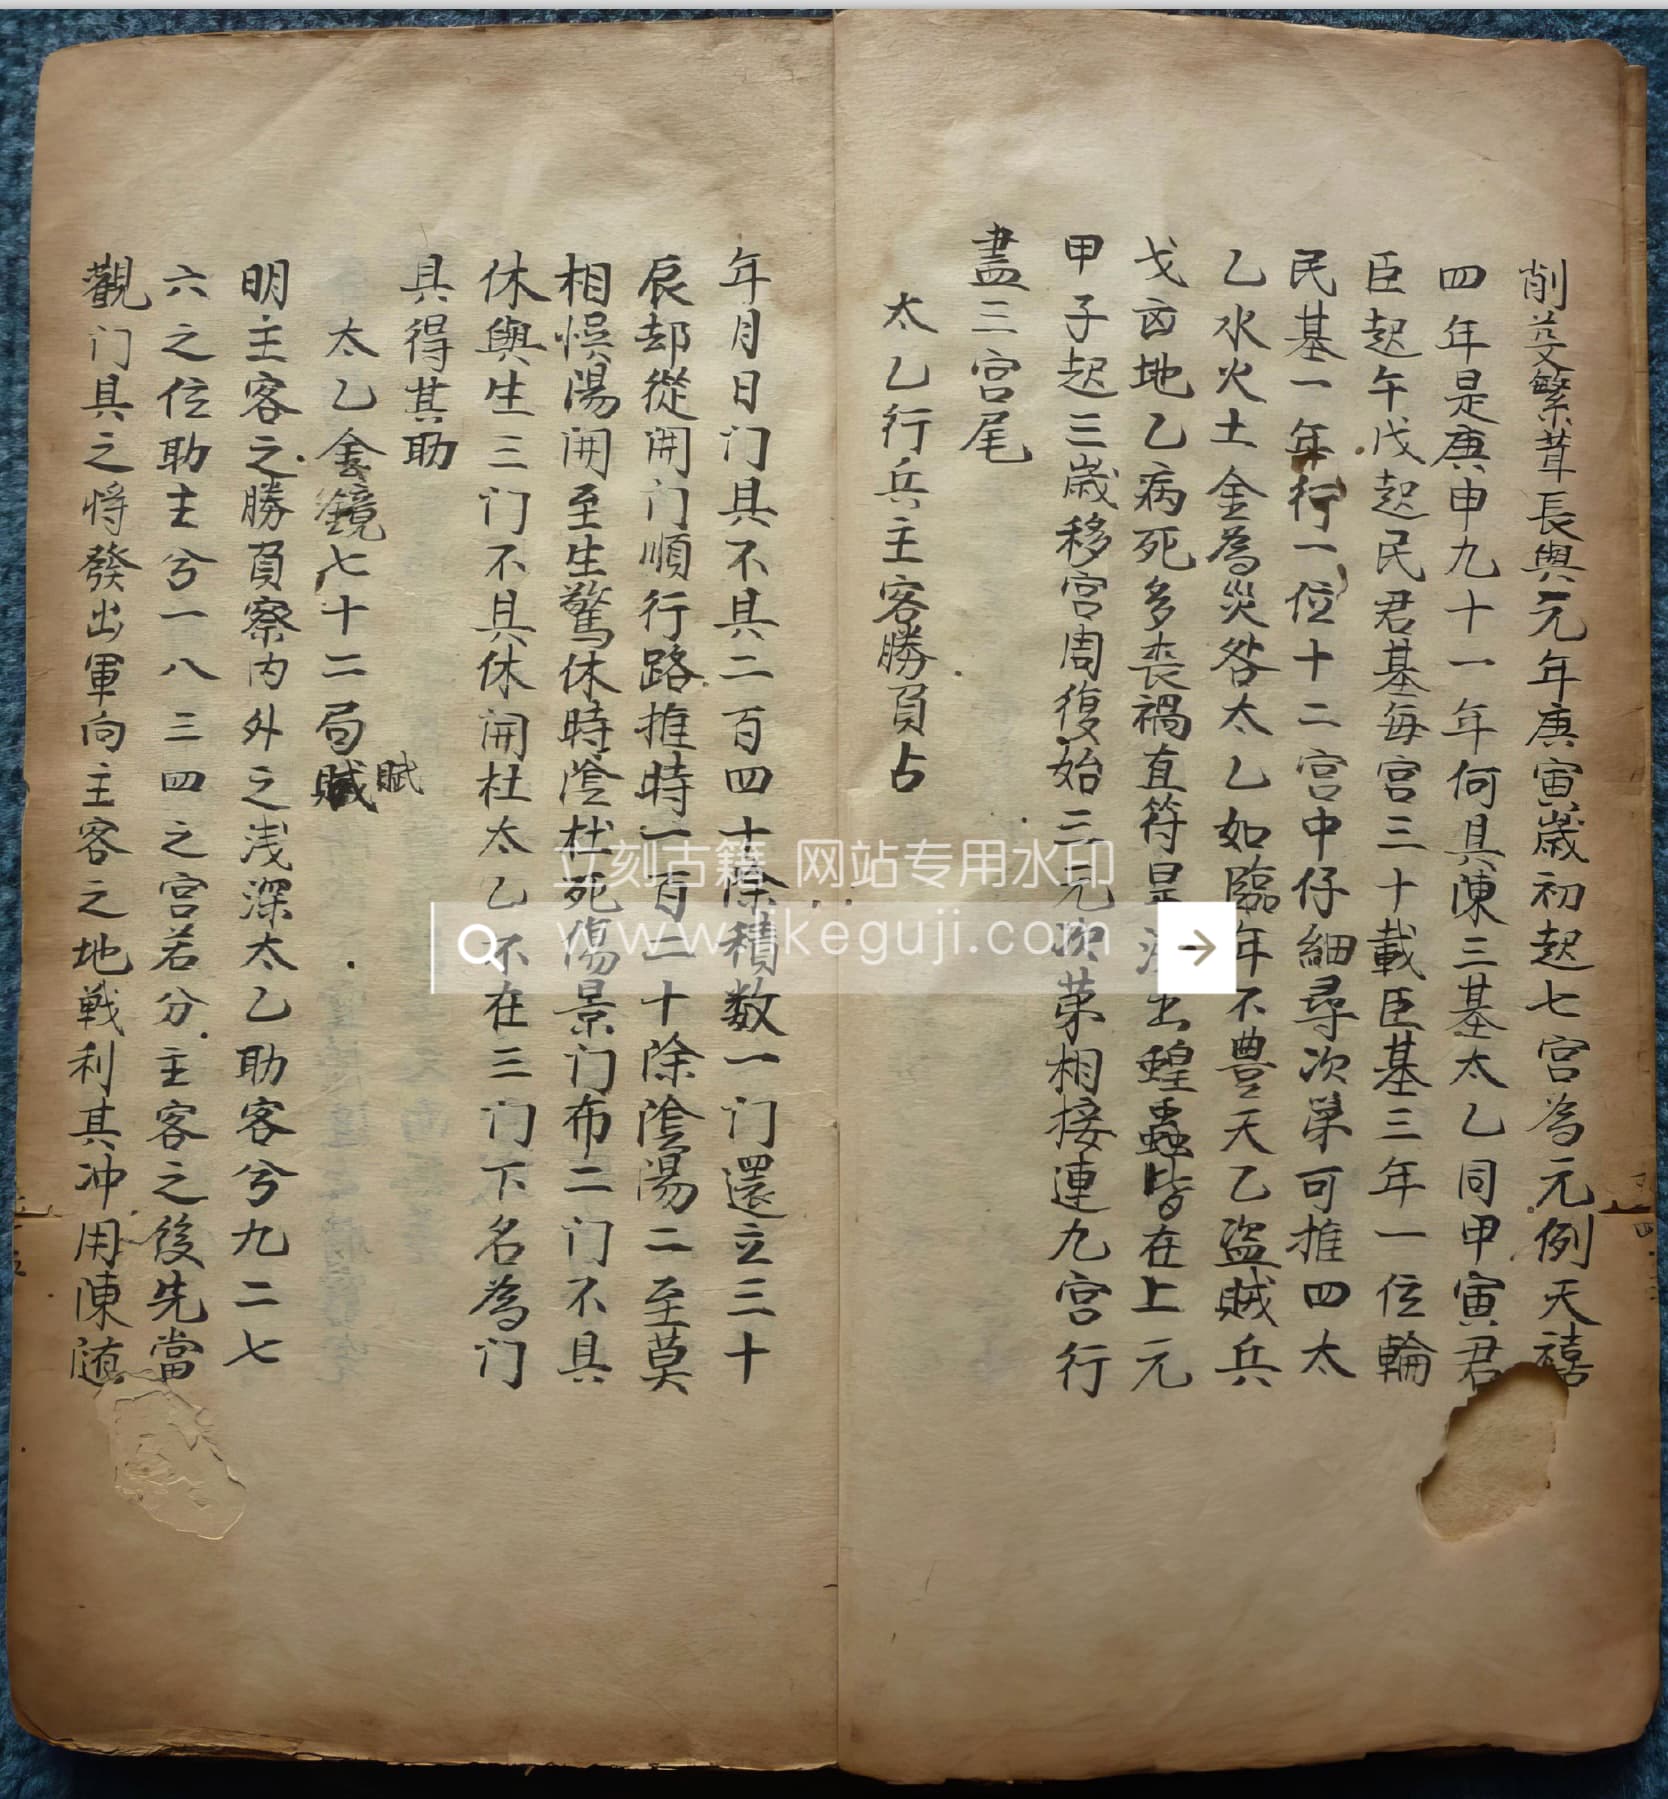 削芟繁葺長興元年庚寅歲初起七宮為元例天禧
四年是庚申九十一年何具陳三基太乙同甲寅君
臣起午戊起民君基每宮三十載臣基三年一位輪
民基一年行一位十二宮中仔細尋次第可推四太
乙水火土金為災咎太乙如臨年不豊天乙盜賊兵
戈凶地乙病死多喪禍直符是出蝗蟲皆在上元
甲子起三歲移宮周復始三元次第相接連九宮行
盡三宮尾
太乙行兵主客勝負占
年月日门具不具二百四十除積数一门還立三十
辰却從開门順行路推時一百二十除陰陽二至莫
相悞陽開至生驚休時陰杜死傷景门布二门不具
休與生三门不具休開杜太乙不在三门下名為门
具得其助
太乙金鏡七十二局賦
賦
明主客之勝負察内外之浅深太乙助客兮九二七
六之位助主兮一八三四之宮若分主客之後先當
觀门具之将發出軍向主客之地戦利其冲用陳随
立刻古籍 网站专用水印
www.likeguji.com